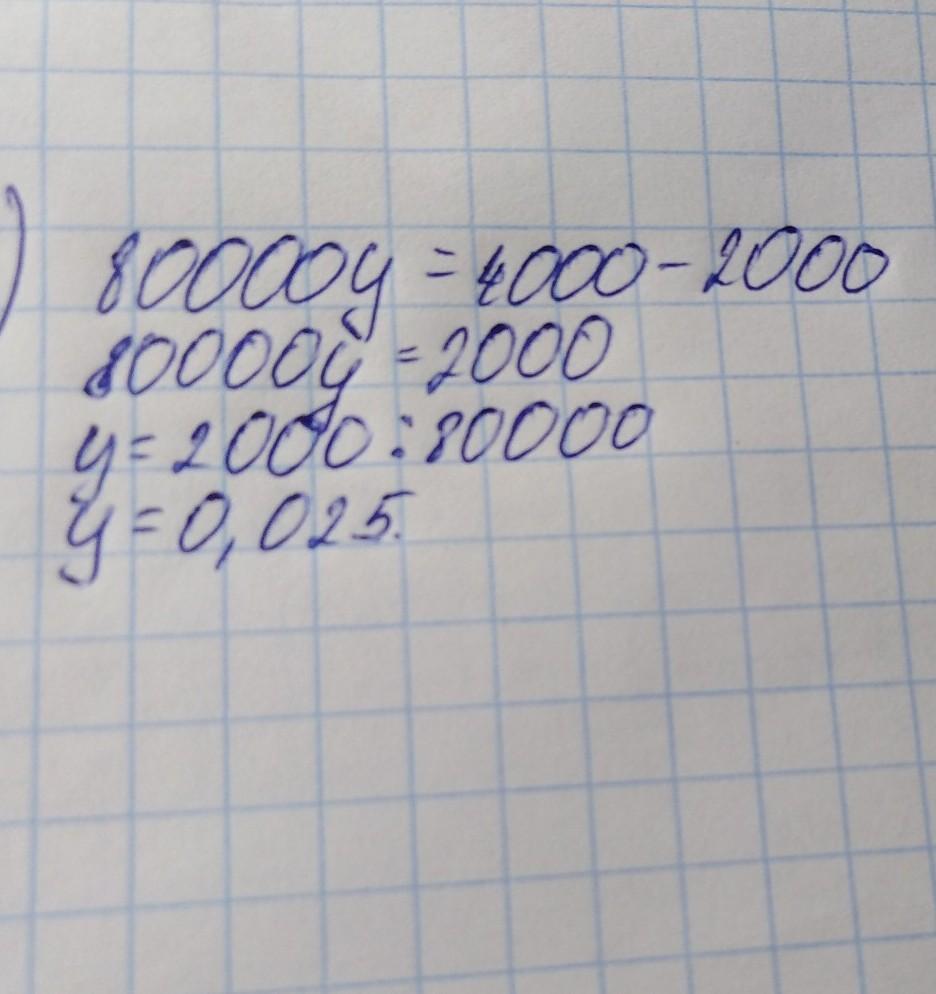 ) 80000y = 4000 - 2000
80000y = 2000
y = 2000 : 80000
y = 0,025.